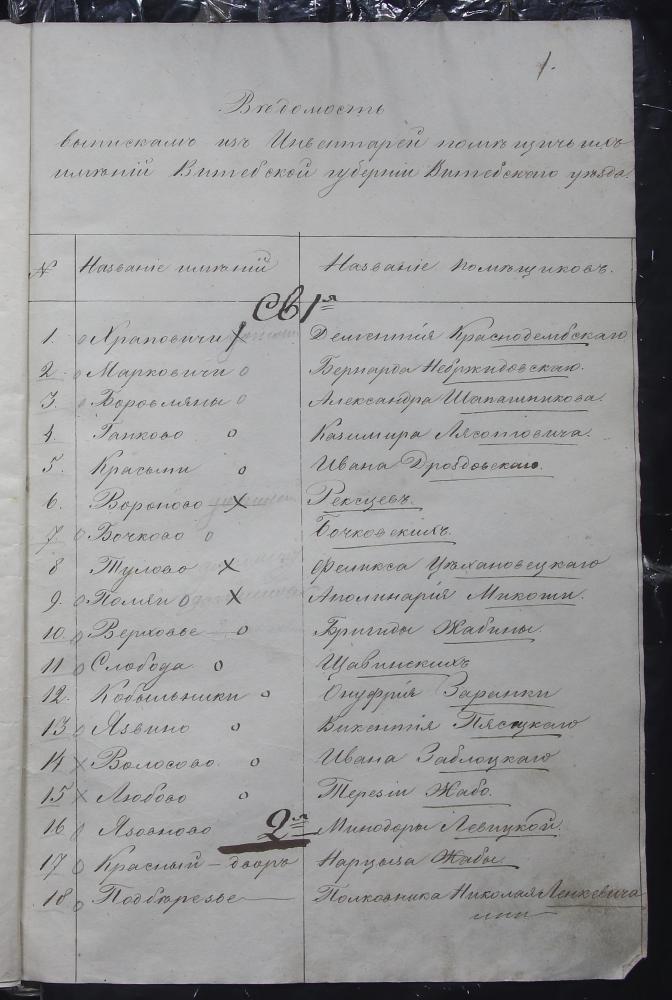 1.
Вѣдомость
выпискамъ изъ Инвентарей помѣщичьихъ
имѣній Витебской губерніи Витебскаго уѣзда.
№ Названіе имѣній Названіе помѣщиковъ.
Св 1я
1. Храповичи х Дементія Краснодембскаго
2. о Марковичи о Бернарда Небржидовскаго.
3. о Боровляны о Александра Шапашникова.
4. Ганково о Казимира Лясотовича.
5. Красыни о Ивана Дроздовскаго.
6. Вороново х Рексцевъ.
7 о Бочково о Бочковскихъ.
8 Тулово х Феликса Цѣхановецкаго
9. о Помяги о х Аполинарія Микоши.
10. о Верховье о Бригиды Жабины.
11 о Слобода о Щавинскихъ
12. Кобыльники о Онуфрія Заранки
13 о Язвино о Викентія Пясецкаго
14 х Волосово. о Ивана Заблоцкаго
15 х Любово о Терезіи Жабо.
2я
16 о Язвиново Минодоры Левицкой.
17 о Красный-дворъ Нарцыза Жабы
18 о Подбѣрезье Полковника Николая Ленкевича